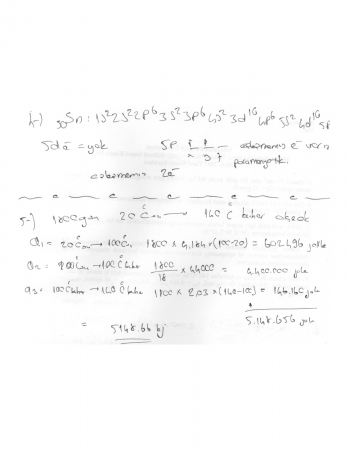 4-) 50Sn: 1s² 2s² 2p⁶ 3s² 3p⁶ 4s² 3d¹⁰ 4p⁶ 5s² 4d¹⁰ 5p
5d ē = yok 5p 1 1 _ eşlenmemiş ē var
x y z paramanyetik.
eşlenmemiş 2ē
5-) 1800 gram 20°C su → 140°C buhar olacak
Q1 = 20°C su → 100°C su 1800 x 4,184 x (100-20) = 602496 joule
Q2 = 100°C su → 100°C buhar 1800/18 x 44000 = 4.400.000 joule
Q3 = 100°C buhar → 140°C buhar 1800 x 2,03 x (140-100) = 146.160 joule
+
5.148.656 joule
= 5148.66 kj